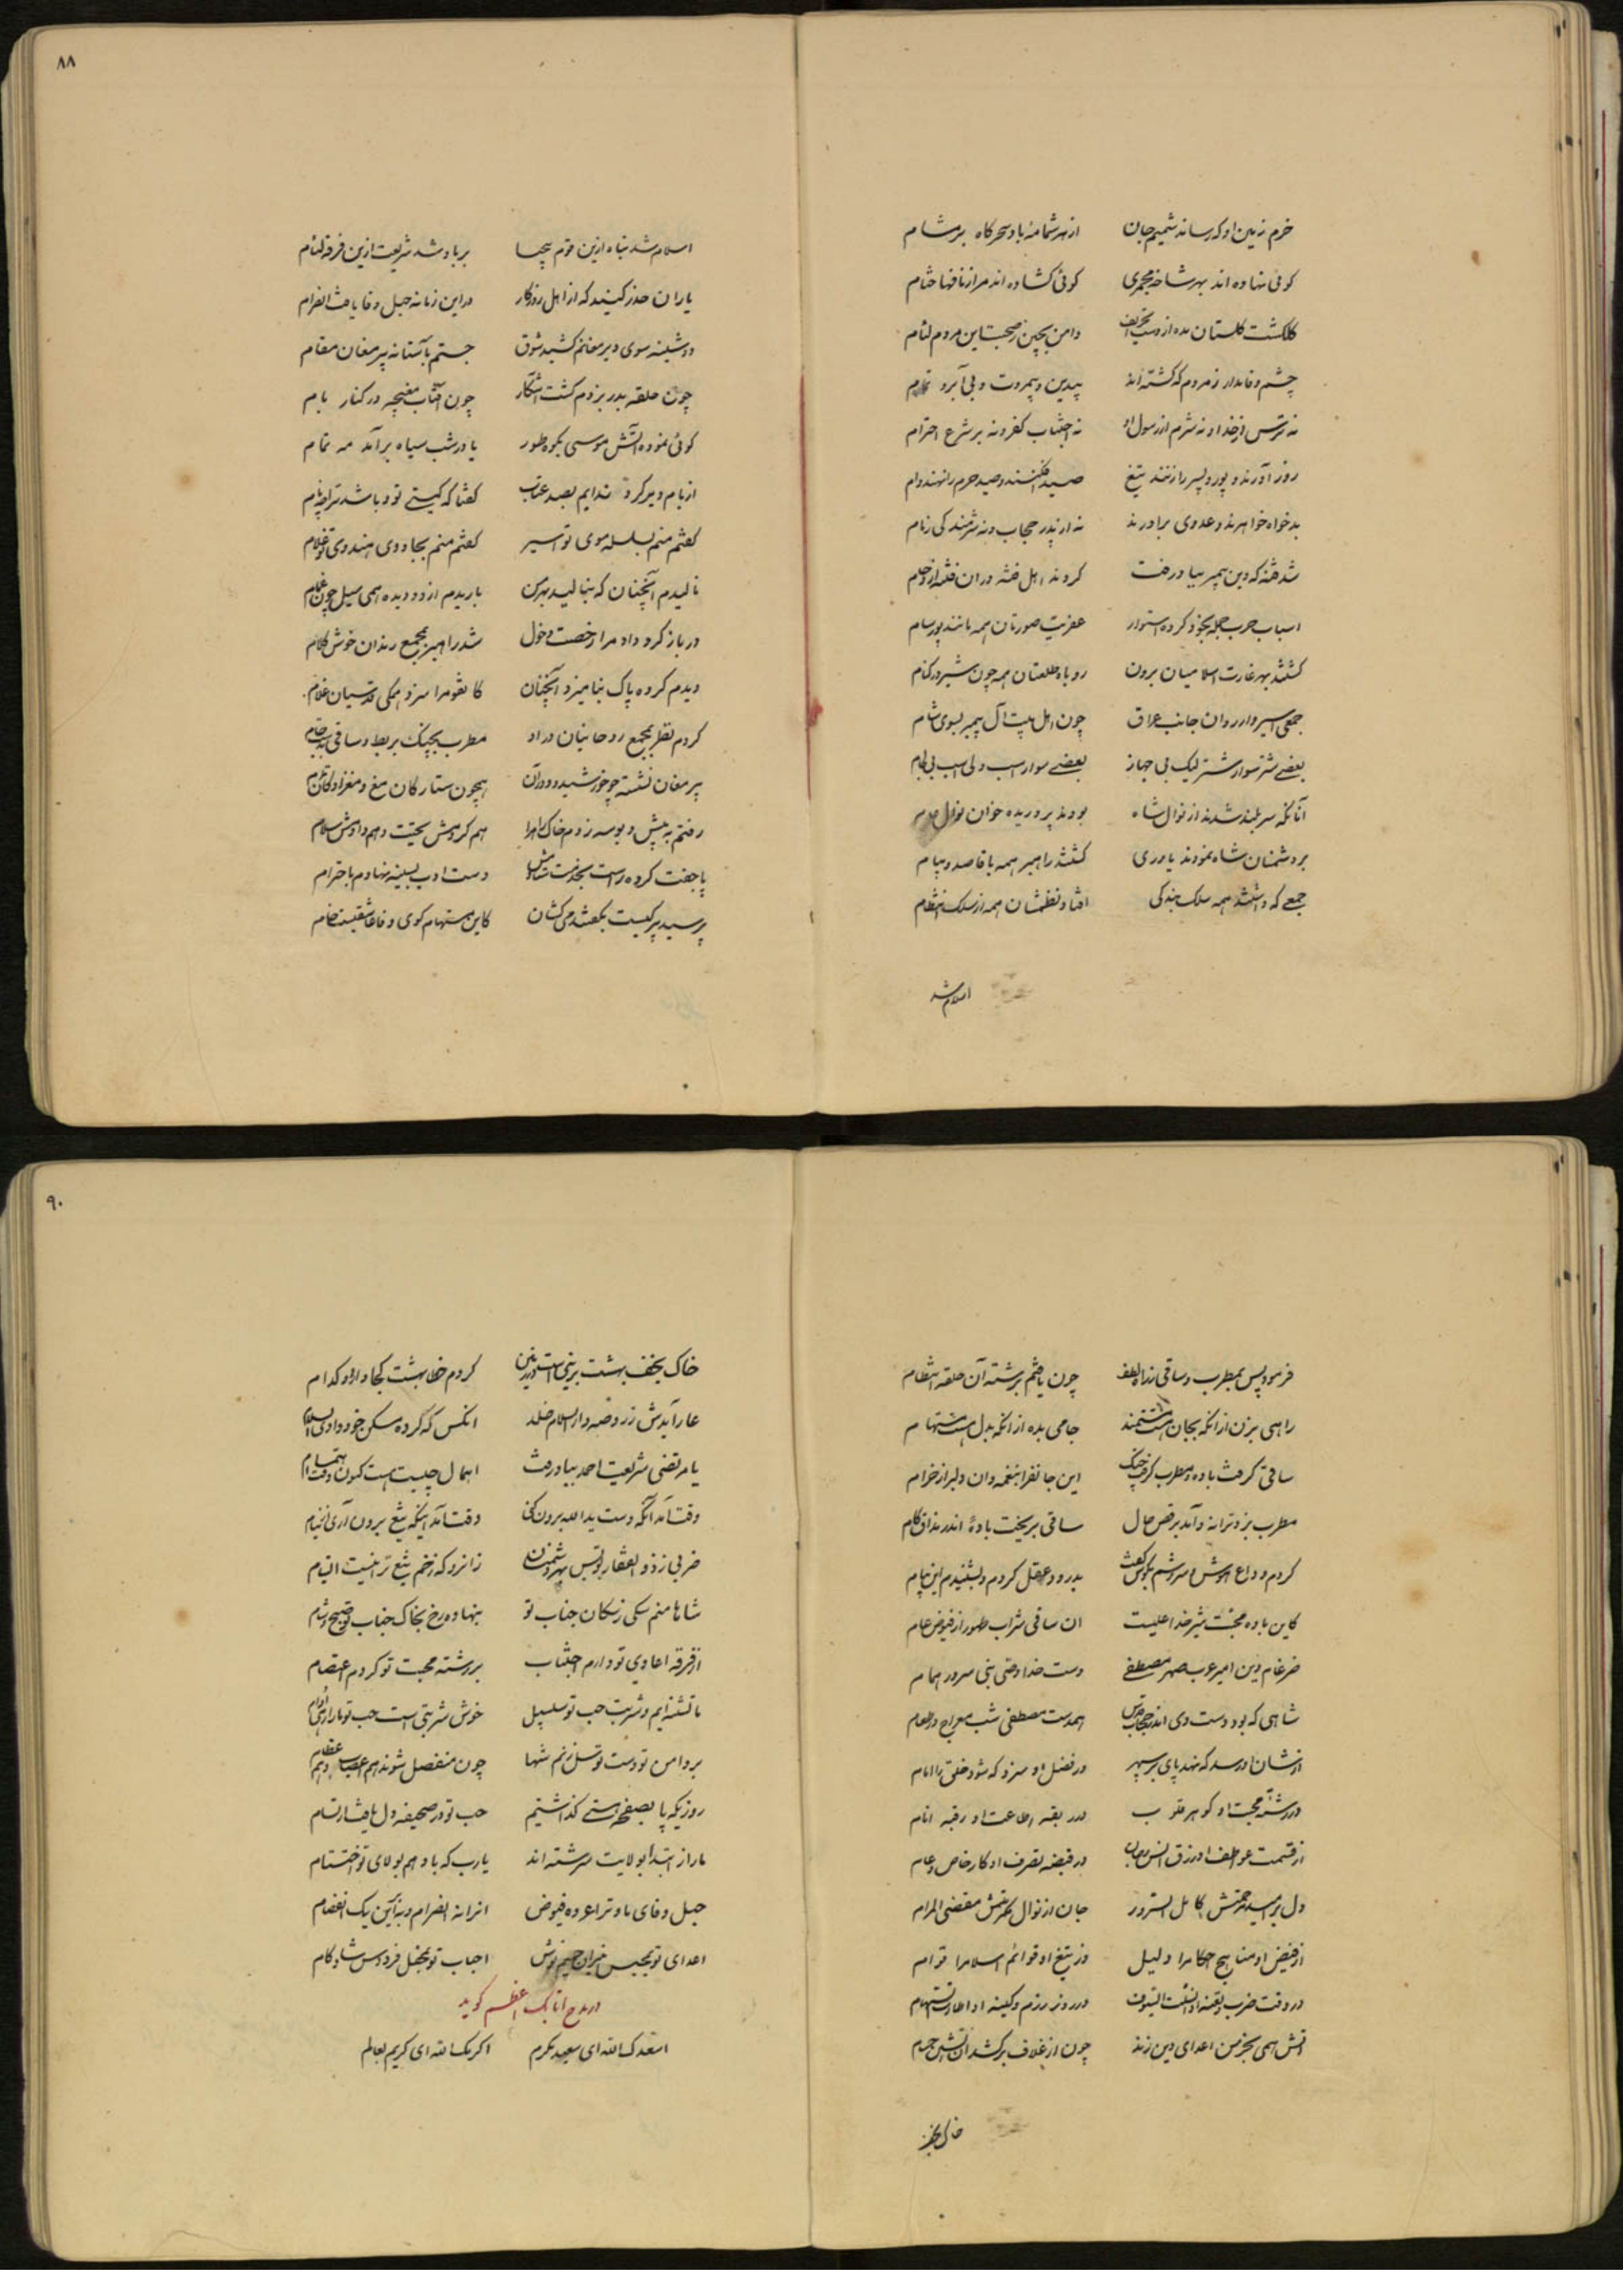 ٨٨
خرم زمین او که رساند شمیم جان از هر شمامه باد سحرگاه بر مشام
گوئی نهاده اند بهر شاخه مجمری گوئی گشاده اند مر از نافها ختام
گلگشت گلستان مده از دست ای حریف دامن بچین ز صحبت این مردم لئام
چشم وفا مدار ز مردم که گشته اند بیدین و بیمروت و بی آبرو تمام
نه ترس از خدا و نه شرم از رسول او نه اجتناب کفر و نه بر شرع احترام
روز آورند و پور و پسر را زنند تیغ صید افکنند و صید حرم را نهند دام
بدخواه خواهرند و عدوی برادرند نه از پدر حجاب و نه شرمندگی ز مام
شد فتنه که دین پیمبر بباد رفت کردند اهل فتنه در ان فتنه ازدحام
اسباب حرب جمله بخود کرده استوار عفریت صورتان همه مانند پور سام
گشتند بهر غارت اسلامیان برون روباه طلعتان همه چون شیر در کنام
جمعی اسیروار روان جانب عراق چون اهل بیت آل پیمبر بسوی شام
بعضی شتر سوار شتر لیک بی جهاز بعضی سوار اسب ولی اسب بی لجام
آنانکه سر بلند شدند از نوال شاه بودند پروریده خوان نوال
بر دشمنان شاه نمودند یاوری گشتند راهبر همه با قاصد و پیام
جمعی که داشتند همه سلک بندگی افتاد نظمشان همه از سلک انتظام
اسلام شد
اسلام شد تباه ازین قوم بیحیا بر باد شد شریعت ازین فرقه لئام
یاران حذر کنید که از اهل روزگار در این زمانه حبل وفا یافت انفرام
دوشینه سوی دیر مغانم کشید شوق جستم بآستانه پیر مغان مقام
چون حلقه بدر بزدم گشت آشکار چون آفتاب مغبچه در کنار بام
گوئی نموده آتش موسی بکوه طور یا در شب سیاه بر آمد مه تمام
از بام دیر کرد ندایم بصد عتاب گفتا که کیستی تو و باشد ترا چه نام
گفتم منم بسلسله موی تو اسیر گفتم منم بجادوی هندوی تو غلام
نالیدم آنچنان که بنالید بهر من باریدم از دو دیده همی سیل چون غمام
در باز کرد و داد مرا رخصت دخول شد راهبر بمجمع رندان خوش کلام
دیدم گروه پاک نهامیزد آنچنان کانقوم را سزد همگی قدسیان غلام
کردم نظر بمجمع روحانیان در او مطرب بچنگ بربط و ساقی بدست جام
پیر مغان نشسته چو خورشید و دور آن همچون ستارگان مغ و مغزادگان تمام
رفتم به پیش و بوسه زدم خاک راه را هم کردمش تحیت و هم دادمش سلام
پا جفت کرده راست بخدمت دست ادب بسینه نهادم باحترام
پرسید پیر کیست بگفتند می کشان کاین مستهام کوی وفا عاشقیست خام
٩٠
فرمود پس بمطرب و ساقی ز راه لطف چون یافتم برشته آن حلقه انتظام
راهی بزن از انکه بجان است مستمند جامی بده از انکه بدل هست مستهام
ساقی گرفت باده و مطرب گرفت چنگ این جانفزا بنغمه و ان دلبر از خرام
مطرب بزد ترانه و آمد برقص حال ساقی بریخت بادهٔ اندر مذاق کام
کردم وداع هوش و سروشم بگوش گفت بدرود عقل کردم و بشنیدم این پیام
کاین باده محبت شیر خدا علیست ان ساقی شراب طهور از فیوض عام
ضرغام دین امیر عرب صهر مصطفی دست خدا وصی نبی سرور انام
شاهی که بود دست وی اندر حجاب قدس همدست مصطفی شب معراج در طعام
از شان او رسد که نهد پای بر سپهر در فضل او سزد که شود خلق را امام
در رشته محبت او گوهر قلوب در ربقه اطاعت او رقبه انام
از قسمت عواطف او رزق انس و جان در قبضه تصرف او کار خاص و عام
دل بر امید رحمتش کامل السرور جان از نوال مکرمتش مقتضی المرام
از فیض او مناهج احکام را دلیل وز تیغ او قوائم اسلام را قوام
در وقت ضرب در روز رزم و کینه او
آتش همی بخرمن اعدای دین زند چون از غلاف برکشد آن آتشین حسام
خاک نجف
خاک نجف بهشت برینی است در زمین کردم خطا بهشت کجا دارد او کدام
عار آیدش ز روضه دار السلام خلد انکس که کرده مسکن خود وادی السلام
یا مرتضی شریعت احمد بباد رفت اهمال چیست هست کنون وقت اهتمام
وقت آمد آنکه دست ید الله برون کنی وقت آمد اینکه تیغ برون آری از نیام
ضربی ز ذوالفقار تو بس بهر دشمنان زانرو که زخم تیغ ترا نیست التیام
شاها منم سگی ز سگان جناب تو بنهاده رخ بخاک جناب تو صبح و شام
از فرقه اعادی تو دارم اجتناب بر رشته محبت تو کردم اعتصام
ما تشنه ایم و شربت حب تو سلسبیل خوش شربتی است حب تو ما را
بر دامن تو دست توسل زنم شها چون منفصل شوند هم اعصاب و هم عظام
روزیکه پا بصفحه هستی گذاشتیم حب تو در صحیفه دل یافت ارتسام
ما را از ابتدا بولایت سرشته اند یارب که باد هم بولای تو اختتام
حبل وفای ما و ترا عروه فیوض انرا نه انفرام و نه آن یک انفصام
اعدای تو بحبس احباب تو بمحفل فردوس شادکام
در مدح اتابک اعظم گوید
اسعدک الله ای سعید مکرم اکرمک الله ای کریم بعالم